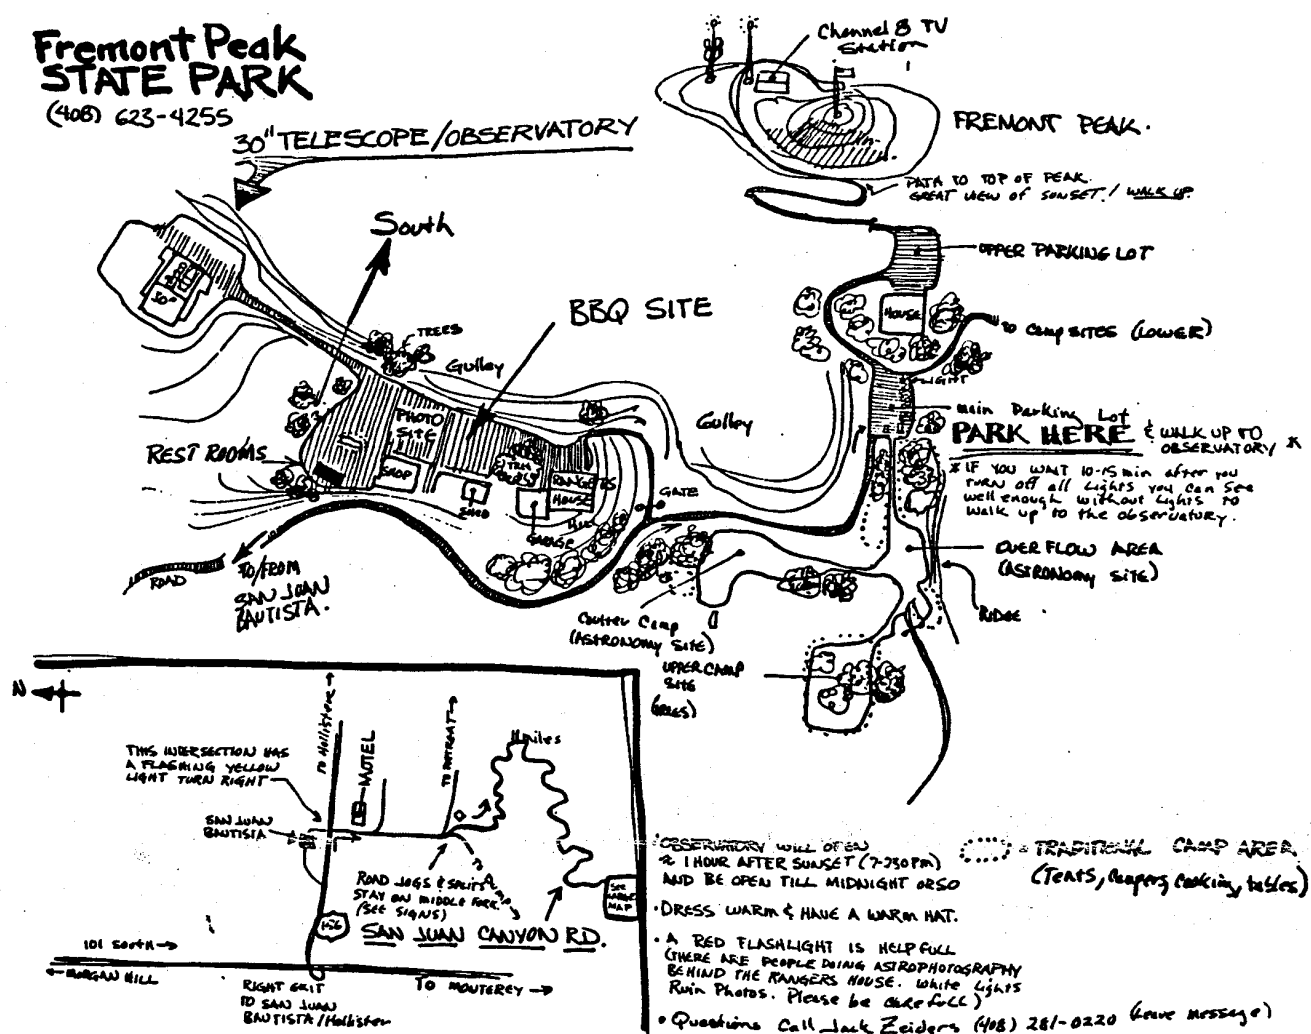 Fremont Peak
STATE PARK
(408) 623-4255
30" TELESCOPE/OBSERVATORY
Channel 8 TV
Station
FREMONT PEAK.
PATH TO TOP OF PEAK.
GREAT VIEW OF SUNSET! WALK UP.
South
UPPER PARKING LOT
30"
BBQ SITE
HOUSE
TO CAMP SITES (LOWER)
TREES
Gulley
LIGHT
PHOTO
SITE
Gulley
main Parking Lot
PARK HERE & WALK UP TO
OBSERVATORY *
REST ROOMS
SHOP
RANGERS
HOUSE
* IF YOU WAIT 10-15 min after you
TURN OFF all Lights you can see
well enough without Lights to
walk up to the observatory.
SHED
GARAGE
GATE
ROAD
TO/FROM
SAN JUAN
BAUTISTA.
OVER FLOW AREA
(ASTRONOMY SITE)
RIDGE
Coulter Camp
(ASTRONOMY SITE)
UPPER CAMP
SITE
N
TO Hollister
MOTEL
TO RETREAT
11 miles
THIS INTERSECTION HAS
A FLASHING YELLOW
LIGHT TURN RIGHT
SAN JUAN
BAUTISTA
ROAD JOGS & SPLITS
STAY ON MIDDLE FORK.
(SEE SIGNS)
SEE
LARGE
MAP
156
SAN JUAN CANYON RD.
101 SOUTH →
← MORGAN HILL
TO MONTEREY →
RIGHT EXIT
TO SAN JUAN
BAUTISTA/Hollister
• OBSERVATORY WILL OPEN
≈ 1 HOUR AFTER SUNSET (7-730 PM)
AND BE OPEN TILL MIDNIGHT OR SO
= TRADITIONAL CAMP AREA
(Tents, Campers, cooking, tables)
• DRESS WARM & HAVE A WARM HAT.
• A RED FLASHLIGHT IS HELPFULL
(THERE ARE PEOPLE DOING ASTROPHOTOGRAPHY
BEHIND THE RANGERS HOUSE. White Lights
Ruin Photos. Please be carefull)
• Questions Call Jack Zeiders (408) 281-0220 (Leave message)